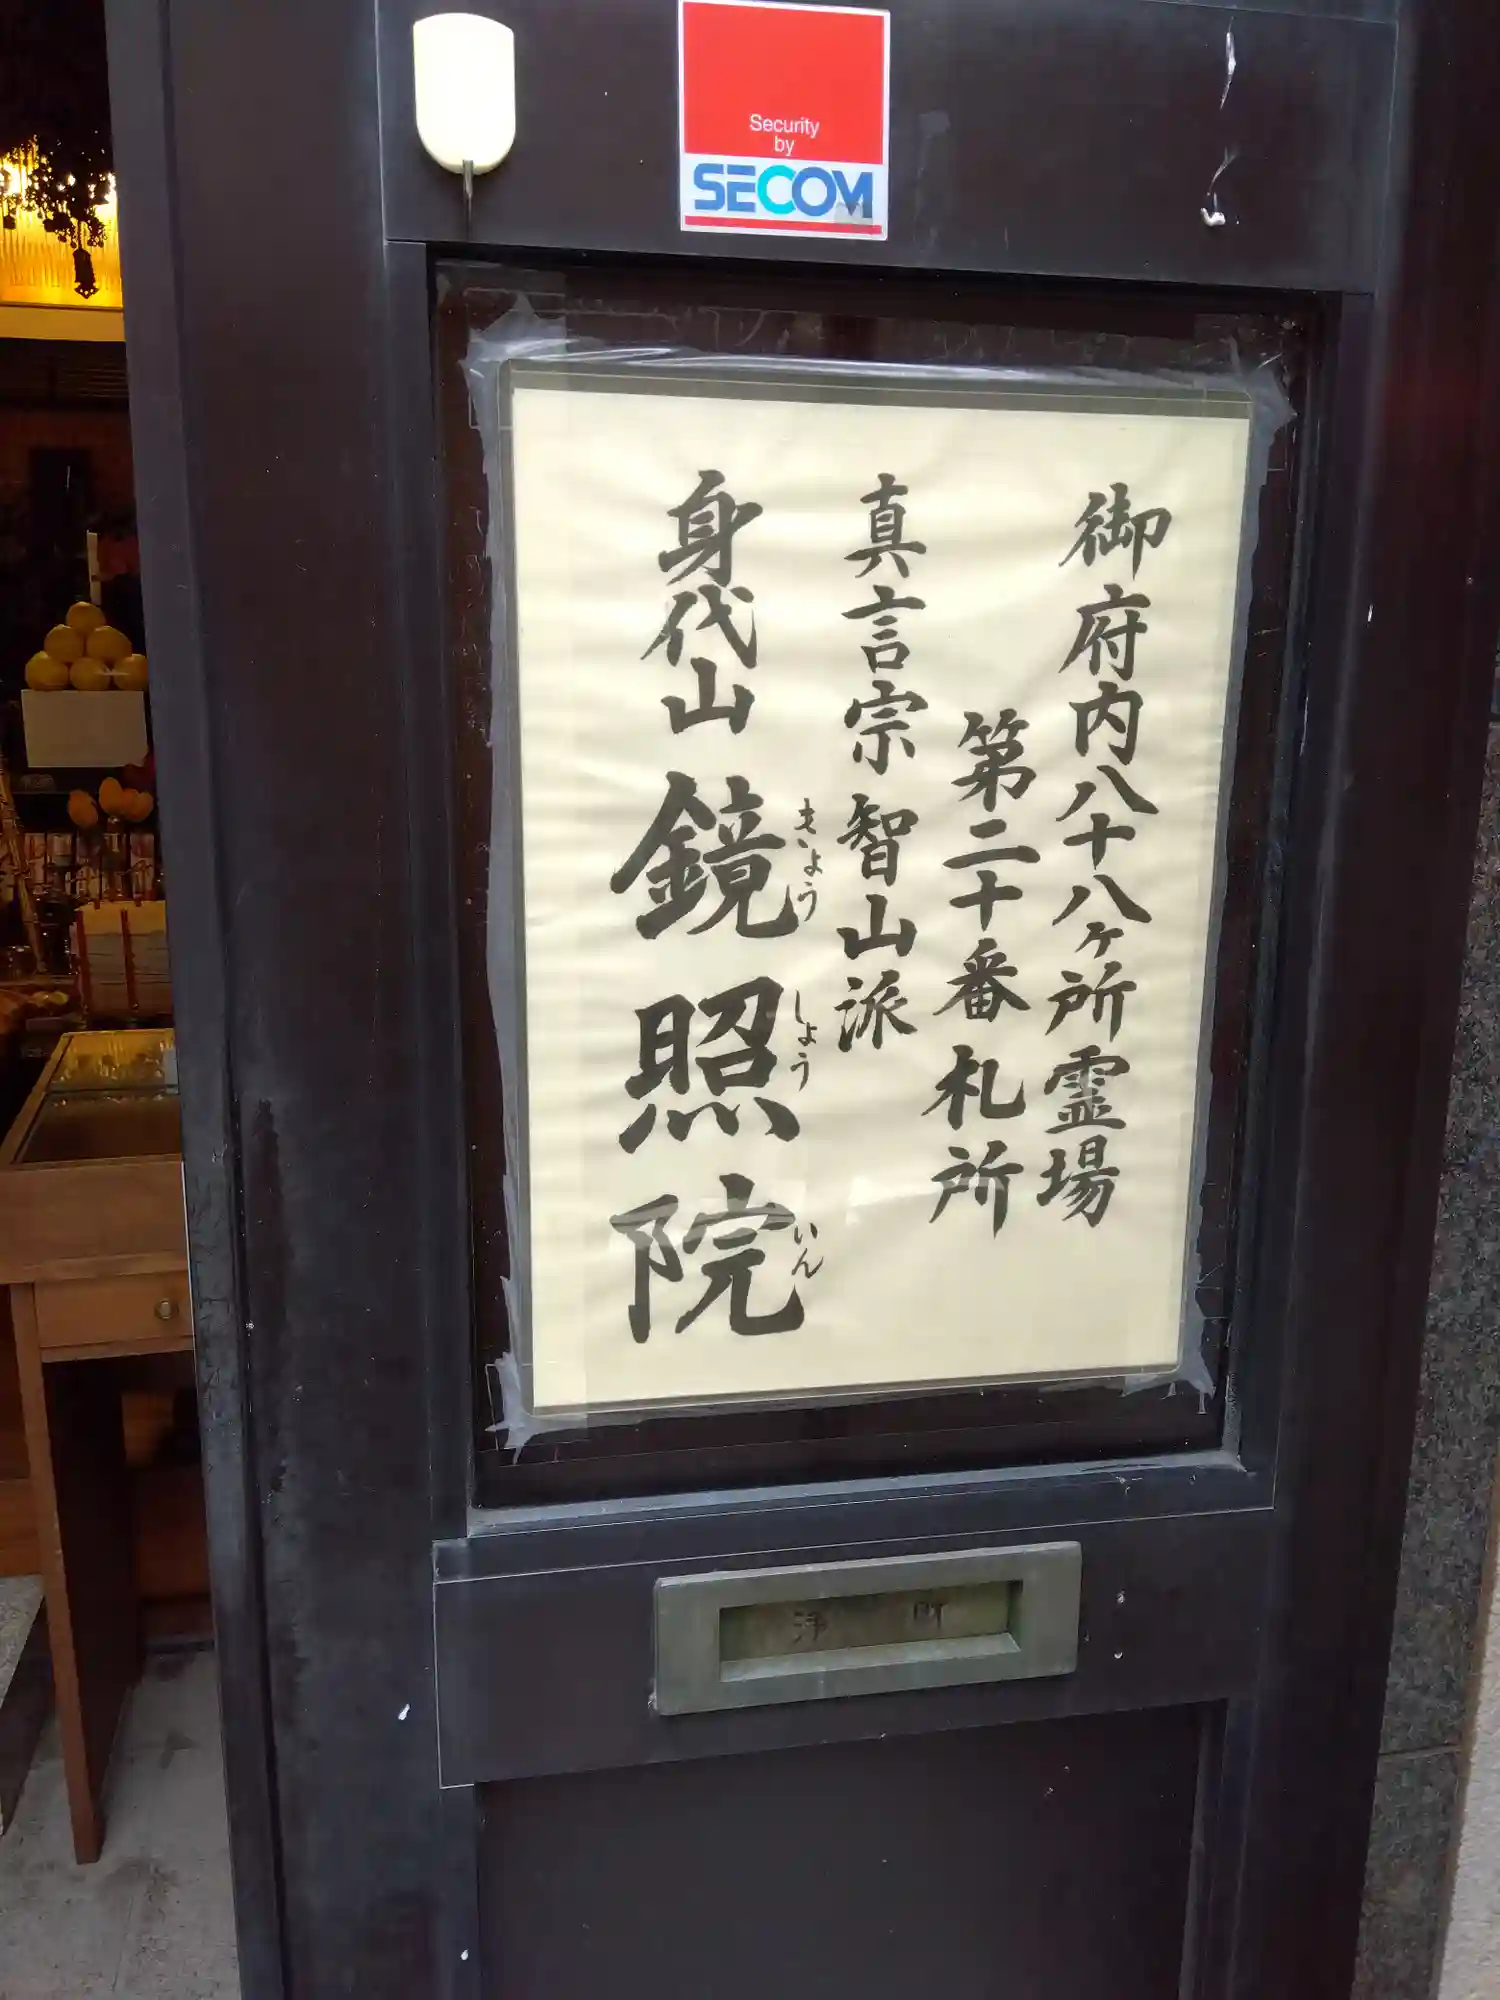 Security
by
SECOM
御府内八十八ヶ所霊場
第二十番札所
真言宗智山派
身代山 鏡照院
きょう しょう いん
浄